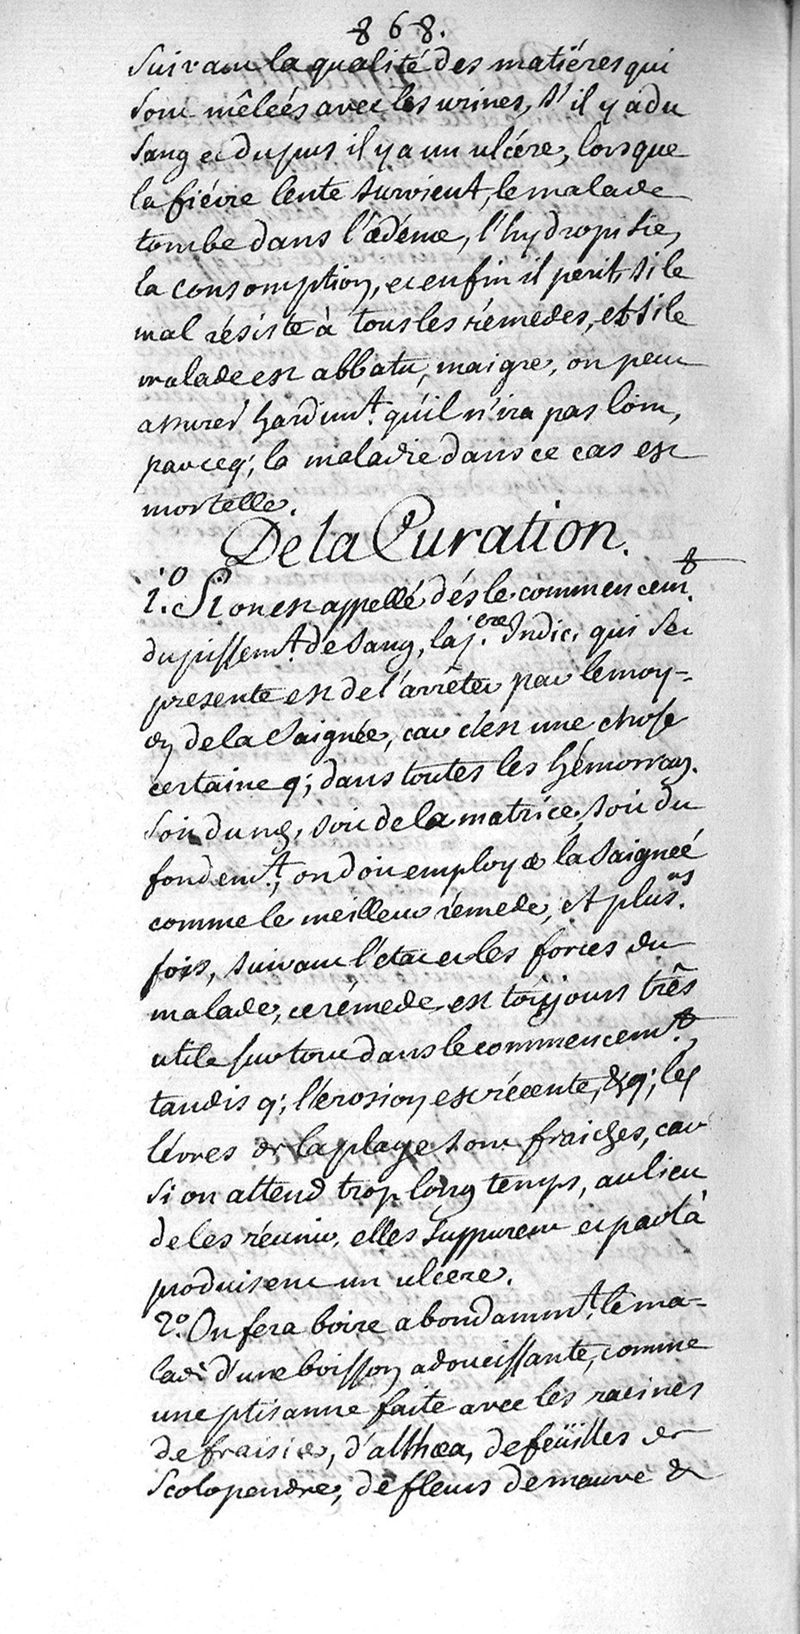 868.
Suivant la qualité des matiéres qui
sont mêleés avec les urines, s'il y a du
sang et du pus il y a un ulcére, lorsque
la fiévre lente survient, le malade
tombe dans l'œdéme, l'hydropisie,
la consomption, et enfin il perit, si le
mal résiste à tous les rémedes, et si le
malade est abbatu, maigre, on peut
assurer hardimt. qu'il n'ira pas loin,
parceq; la maladie dans ce cas est
mortelle.
De la Curation.
1.o Si on est appellé dés le commencemt.
du pissemt. de sang, la j.ere Indic. qui se
presente est de l'arrêter par le moy-
en de la Saignée, car c'est une chose
certaine q; dans toutes les hémorrag.
soit du nés, soit de la matrice, soit du
fondemt., on doit employer la saigneé
comme le meilleur rémede, et plus.rs
fois, suivant l'état et les forces du
malade, ce rémede est toûjours três
utile surtout dans le commencemt.,
tandis q; l'érosion est récente, & q; les
lévres de la playe sont fraiches, car
si on attend trop long temps, au lieu
de les réunir, elles suppurent et par là
produisent un ulcere.
2.o On fera boire abondammt. le ma-
lade d'une boisson adoucissante, comme
une ptisanne faite avec les racines
de fraisier, d'althœa, de feüilles de
Scolopendre, de fleurs de mauve &